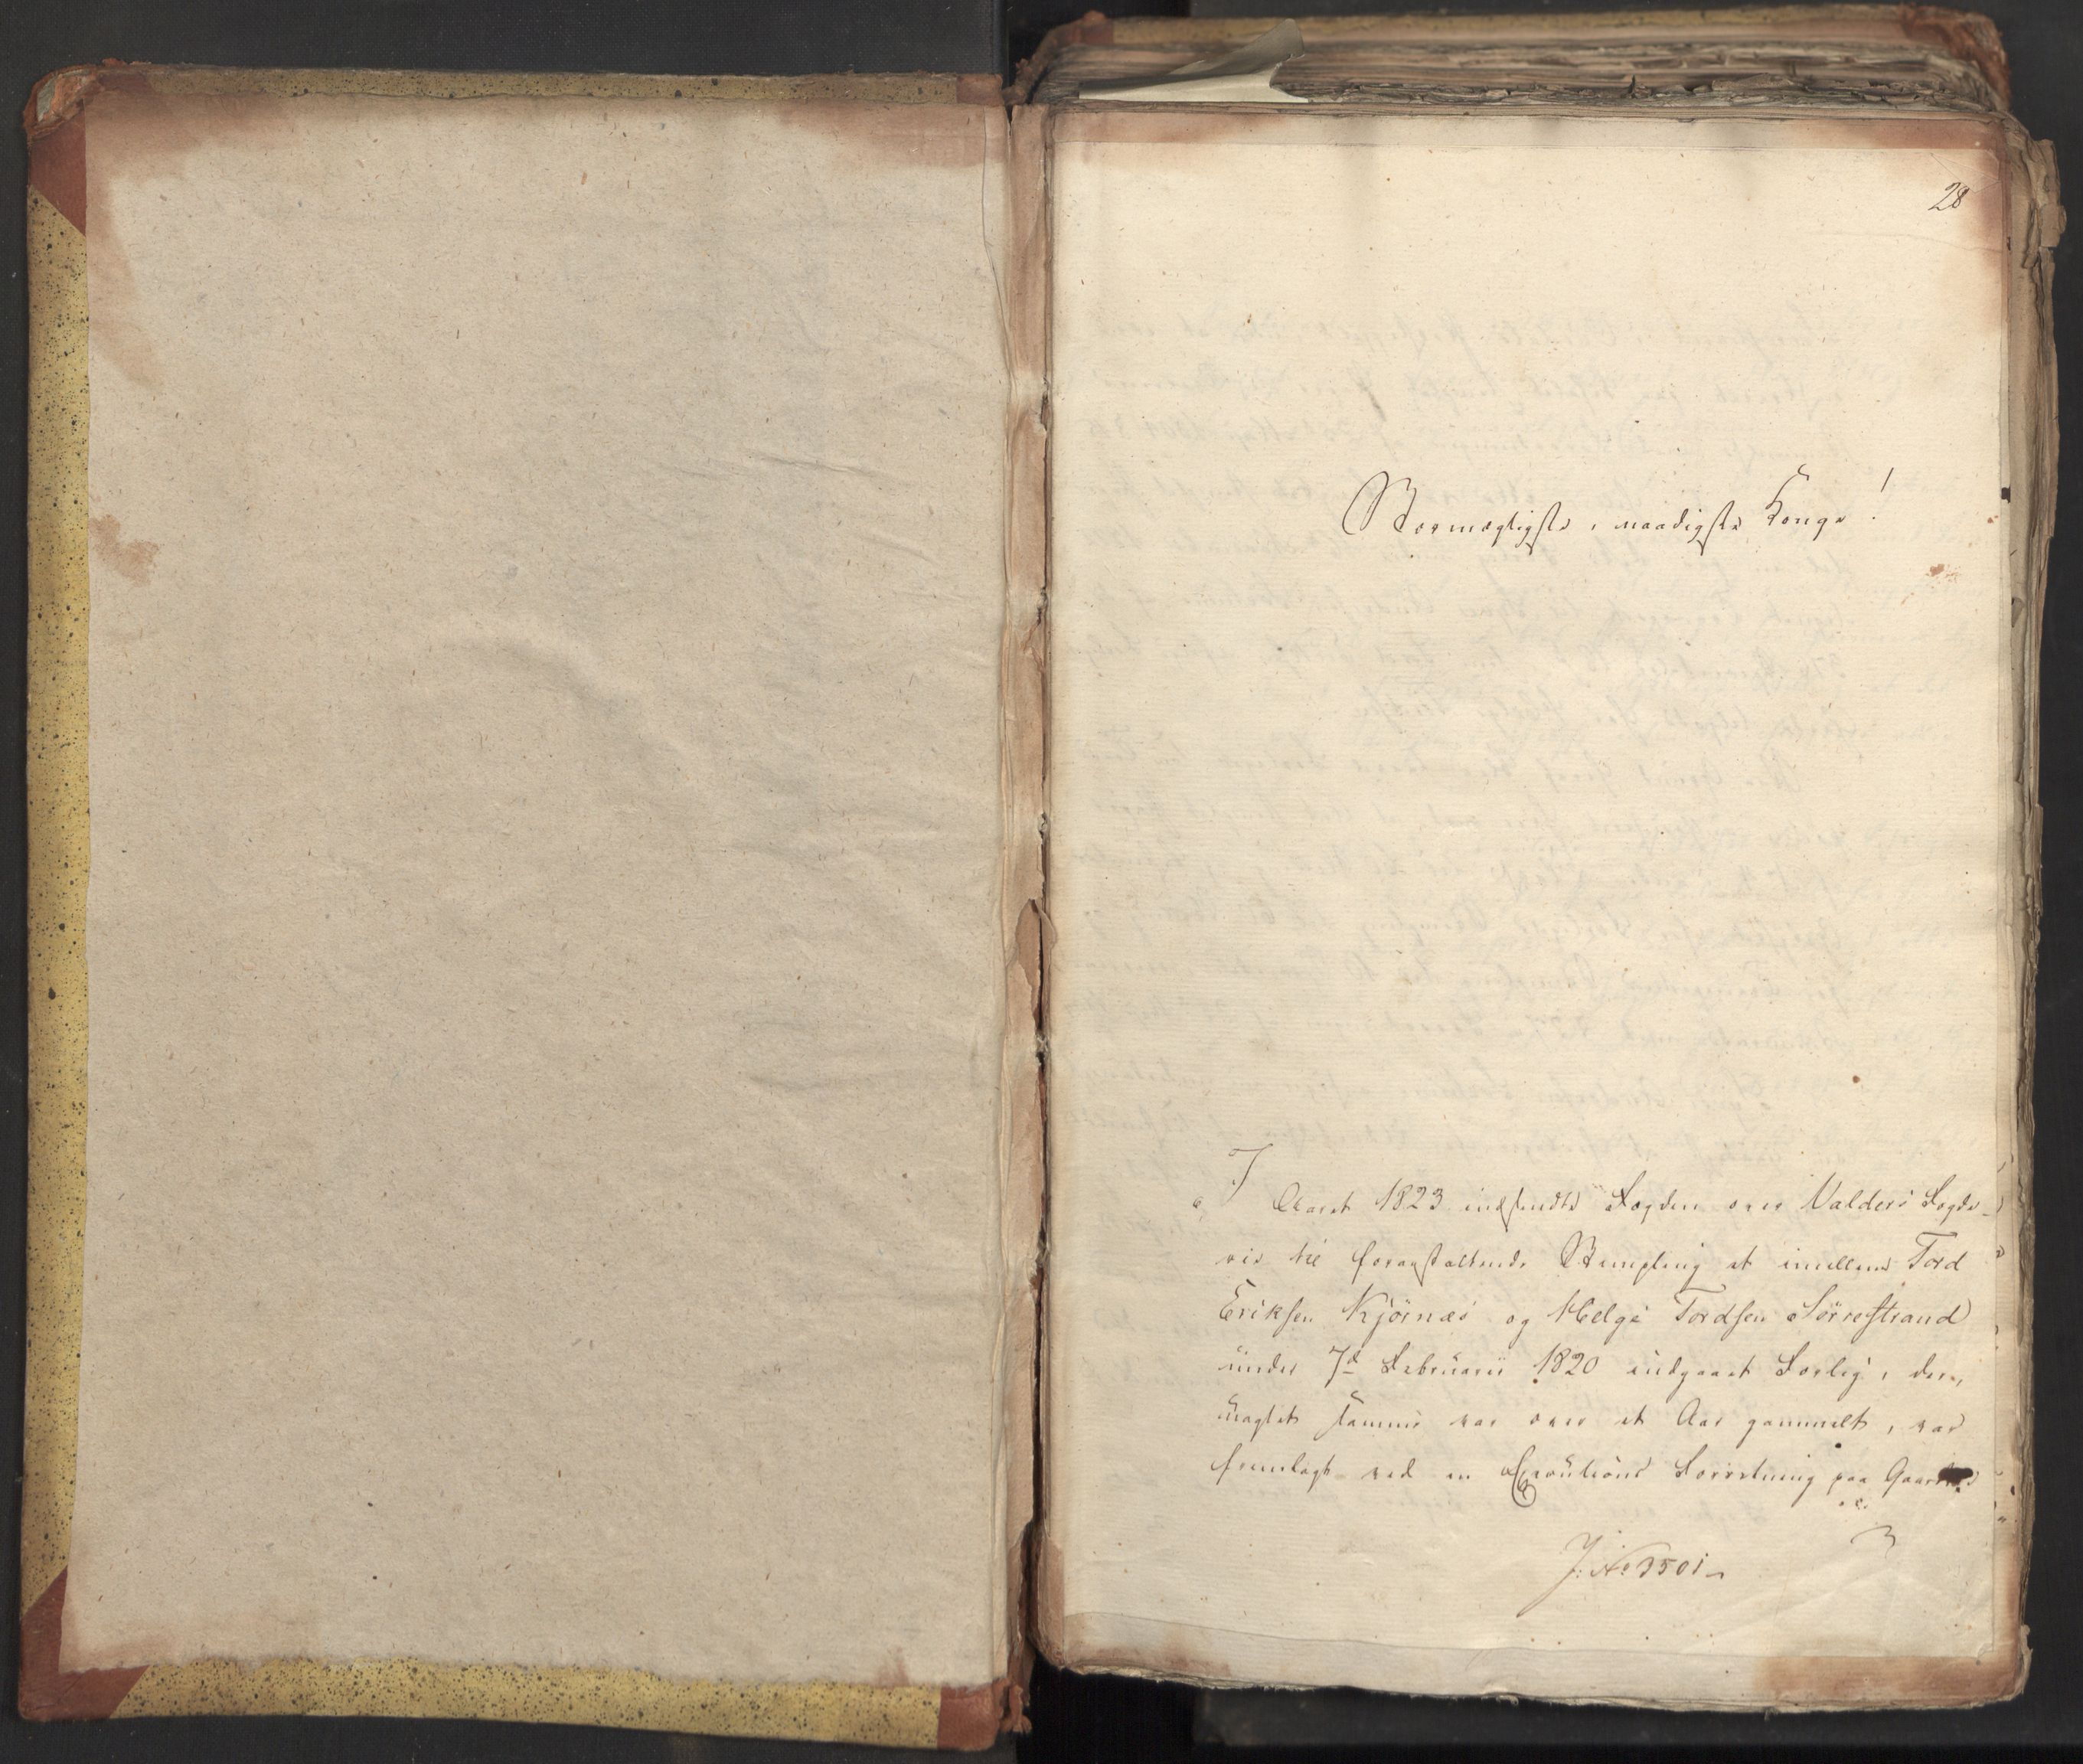 28
Stormægtigste, naadigste Konge!
I Aaret 1823 indsendte Fogden over Valders Fogde-
rie til foranstaltende Stempling et imellem Tord
Eriksen Kjörnæs og Helge Tordsen Sørrestrand
under 7d Februarii 1820 indgaaet Forlig, der,
uagtet samme var over et Aar gammelt, var
fremlagt ved en Executions Forretning paa Gaarden
J: No 3501